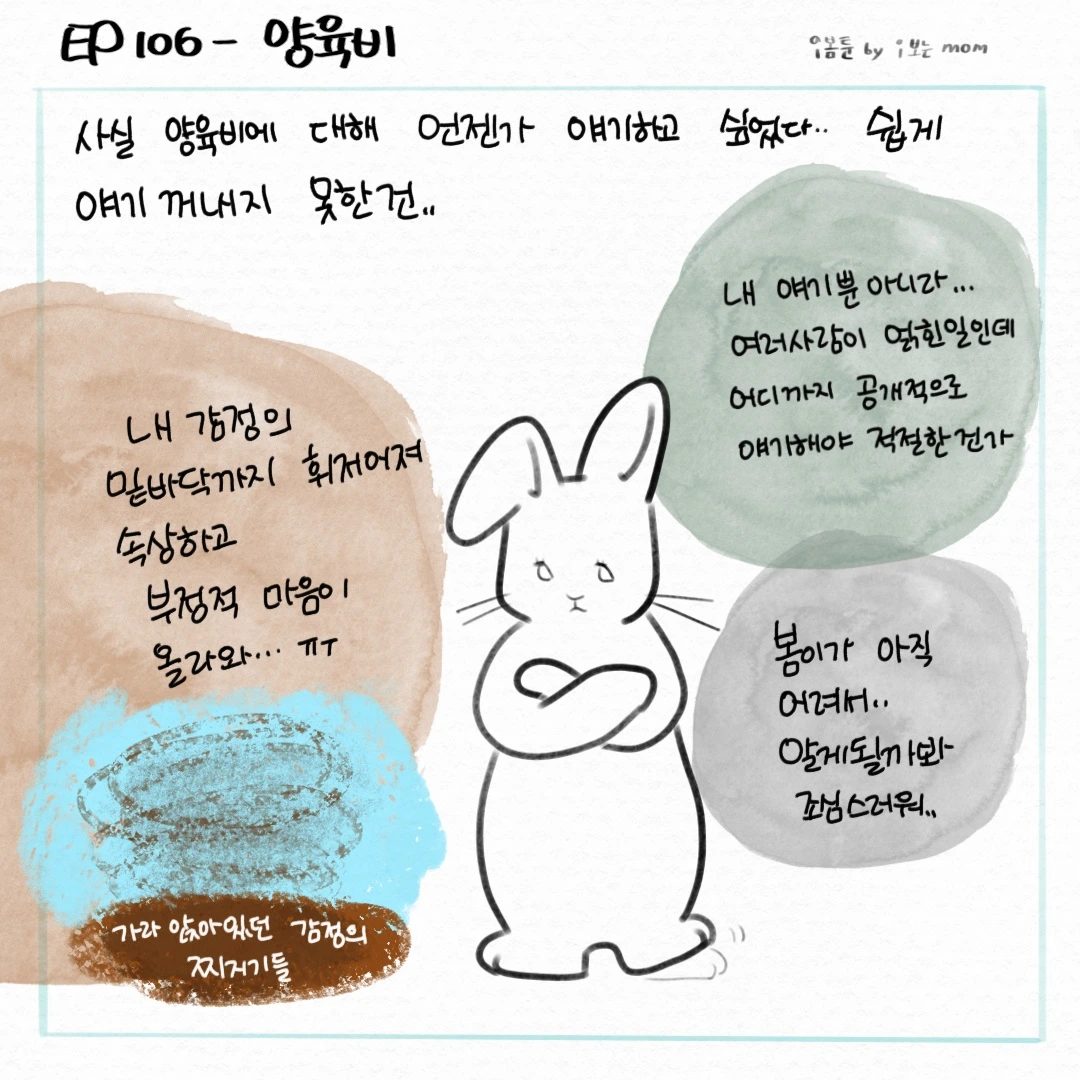 EP 106 - 양육비
우봄툰 by 우보는 mom
사실 양육비에 대해 언젠가 얘기하고 싶었다.. 쉽게
얘기 꺼내지 못한건..
내 얘기뿐 아니라...
여러사람이 얽힌일인데
어디까지 공개적으로
얘기해야 적절한건가
내 감정의
밑바닥까지 휘저어져
속상하고
부정적 마음이
올라와... ㅠㅜ
봄이가 아직
어려서..
알게될까봐
조심스러워..
가라앉아있던 감정의
찌거기들